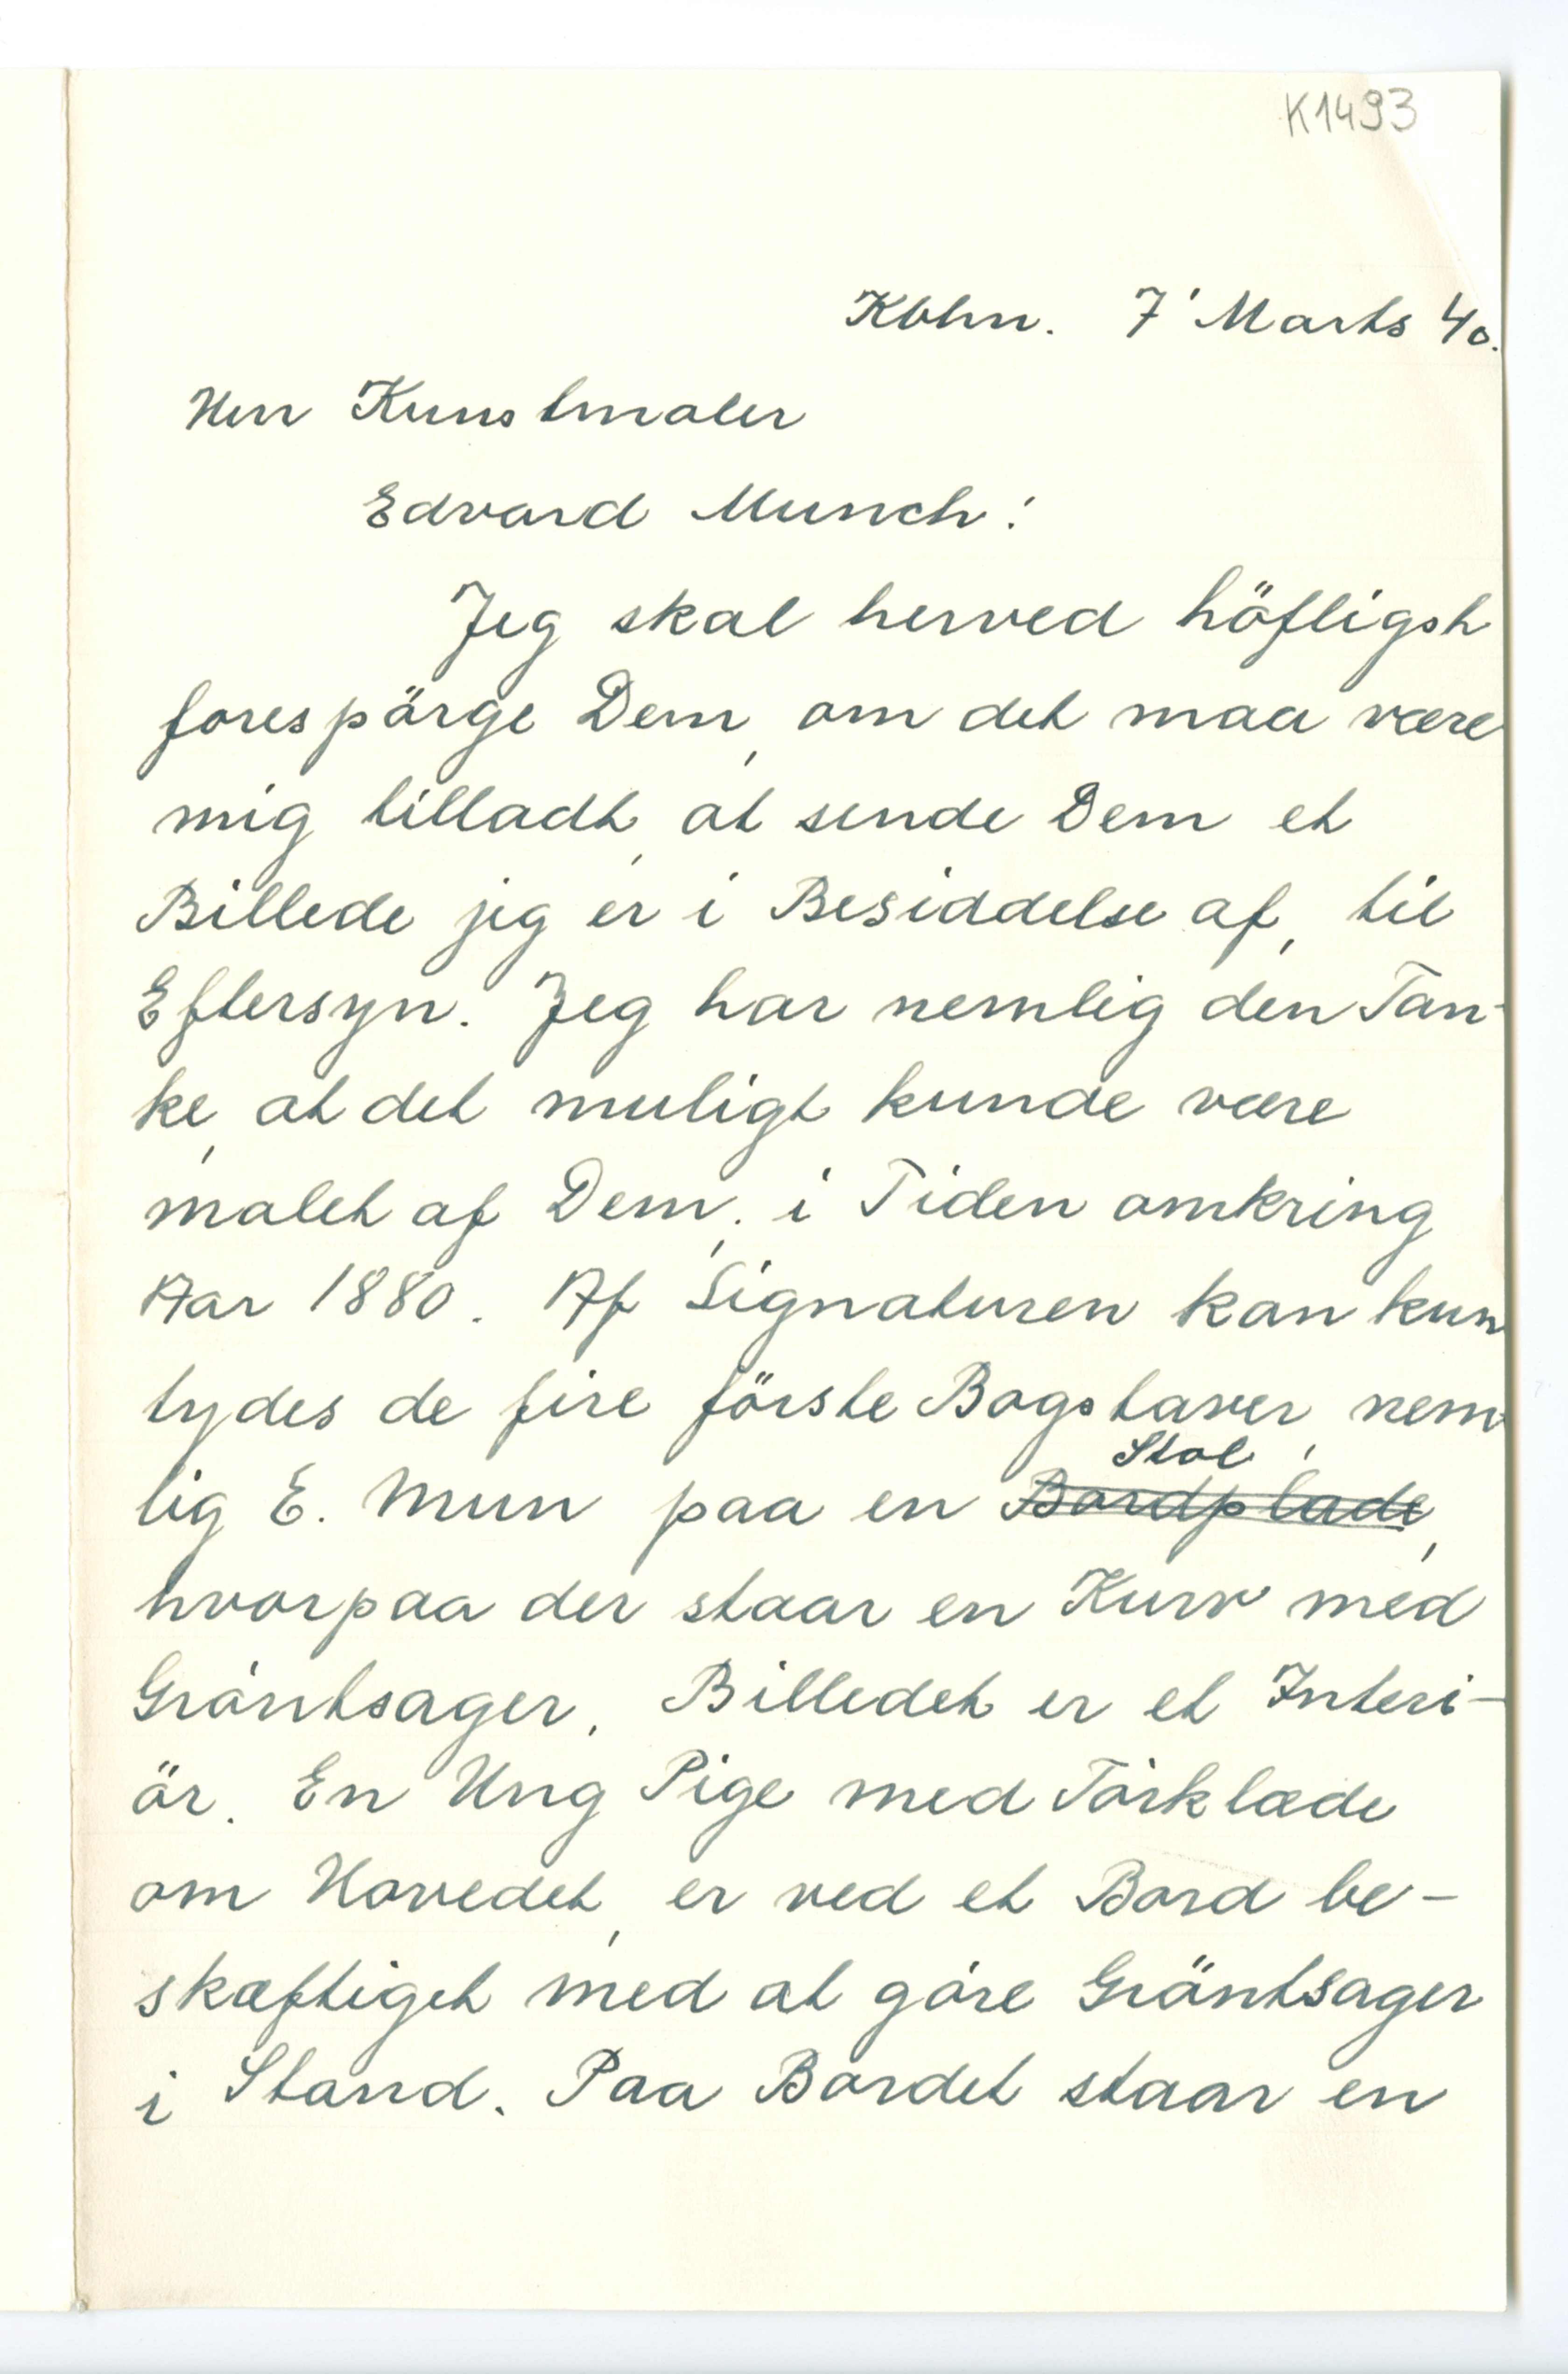 K1493
Kbhn. 7' Marts 40.
Herr Kunstmaler
Edvard Munch!
Jeg skal herved höfligst
forespörge Dem, om det maa være
mig tilladt, at sende Dem et
Billede jeg er i Besiddelse af, til
Eftersyn. Jeg har nemlig den Tan-
ke, at det muligt kunde være
malet af Dem, i Tiden omkring
Aar 1880. Af Signaturen kan kun
tydes de fire förste Bogstaver, nem
Stol
lig E. Mun paa en Bordplade,
hvorpaa der staar en Kurv med
Gröntsager. Billedet er et Interi-
ör. En Ung Pige med Törklæde
om Hovedet, er ved et Bord be-
skæftiget med at göre Gröntsager
i Stand. Paa Bordet staar en